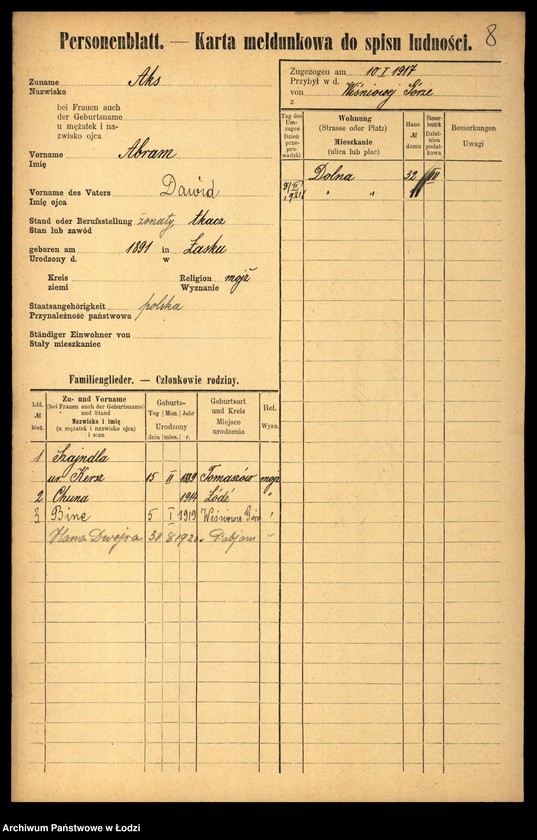 8
Personenblatt. — Karta meldunkowa do spisu ludności.
Zuname Aks
Nazwisko
bei Frauen auch
der Geburtsname
u mężatek i na-
zwisko ojca
Vorname Abram
Imię
Vorname des Vaters Dawid
Imię ojca
Stand oder Berufsstellung żonaty tkacz
Stan lub zawód
geboren am 1891 in Łasku
Urodzony d. w
Kreis Religion mojż
ziemi Wyznanie
Staatsangehörigkeit polska
Przynależność państwowa
Ständiger Einwohner von
Stały mieszkaniec
Zugezogen am 10 I 1917
Przybył w d.
von Wiśniowej Górze
z
Tag des Um-zuges Dzień prze-prowadzki
Wohnung (Strasse oder Platz) Mieszkanie (ulica lub plac)
Haus № domu
Steuer-bezirk Dzielnica podatkowa
Bemerkungen Uwagi
Dolna 32 III
" "
Familienglieder. — Członkowie rodziny.
Lfd. № bież.
Zu- und Vorname (bei Frauen auch der Geburtsname) und Stand Nazwisko i imię (u mężatek i nazwisko ojca) i stan
Geburts- Tag Mon. Jahr Urodzony dnia mies. r.
Geburtsort und Kreis Miejsce urodzenia
Rel. Wyzn.
1 Szajndla
ur. Kersz 15 II 1889 Tomaszów mojż
2 Chuna 1914 Łódź "
3 Bine 5 I 1919 Wiśniowa Góra "
Hana Dwojra 30 8 192 "
Archiwum Państwowe w Łodzi